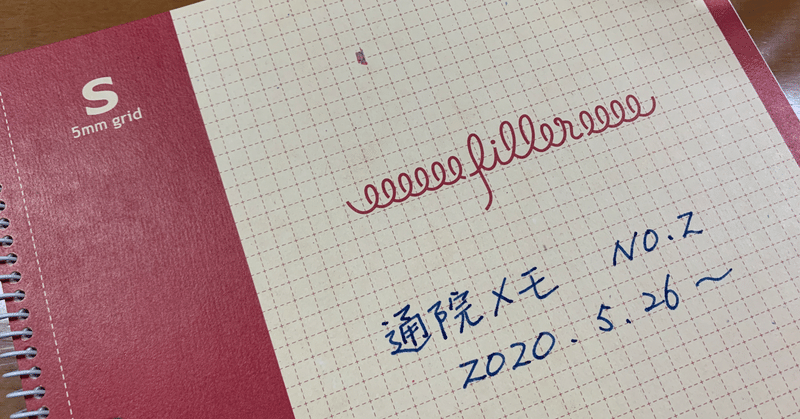 S
5mm grid
eeeeeeefillereeeee
通院メモ NO.2
2020.5.26～